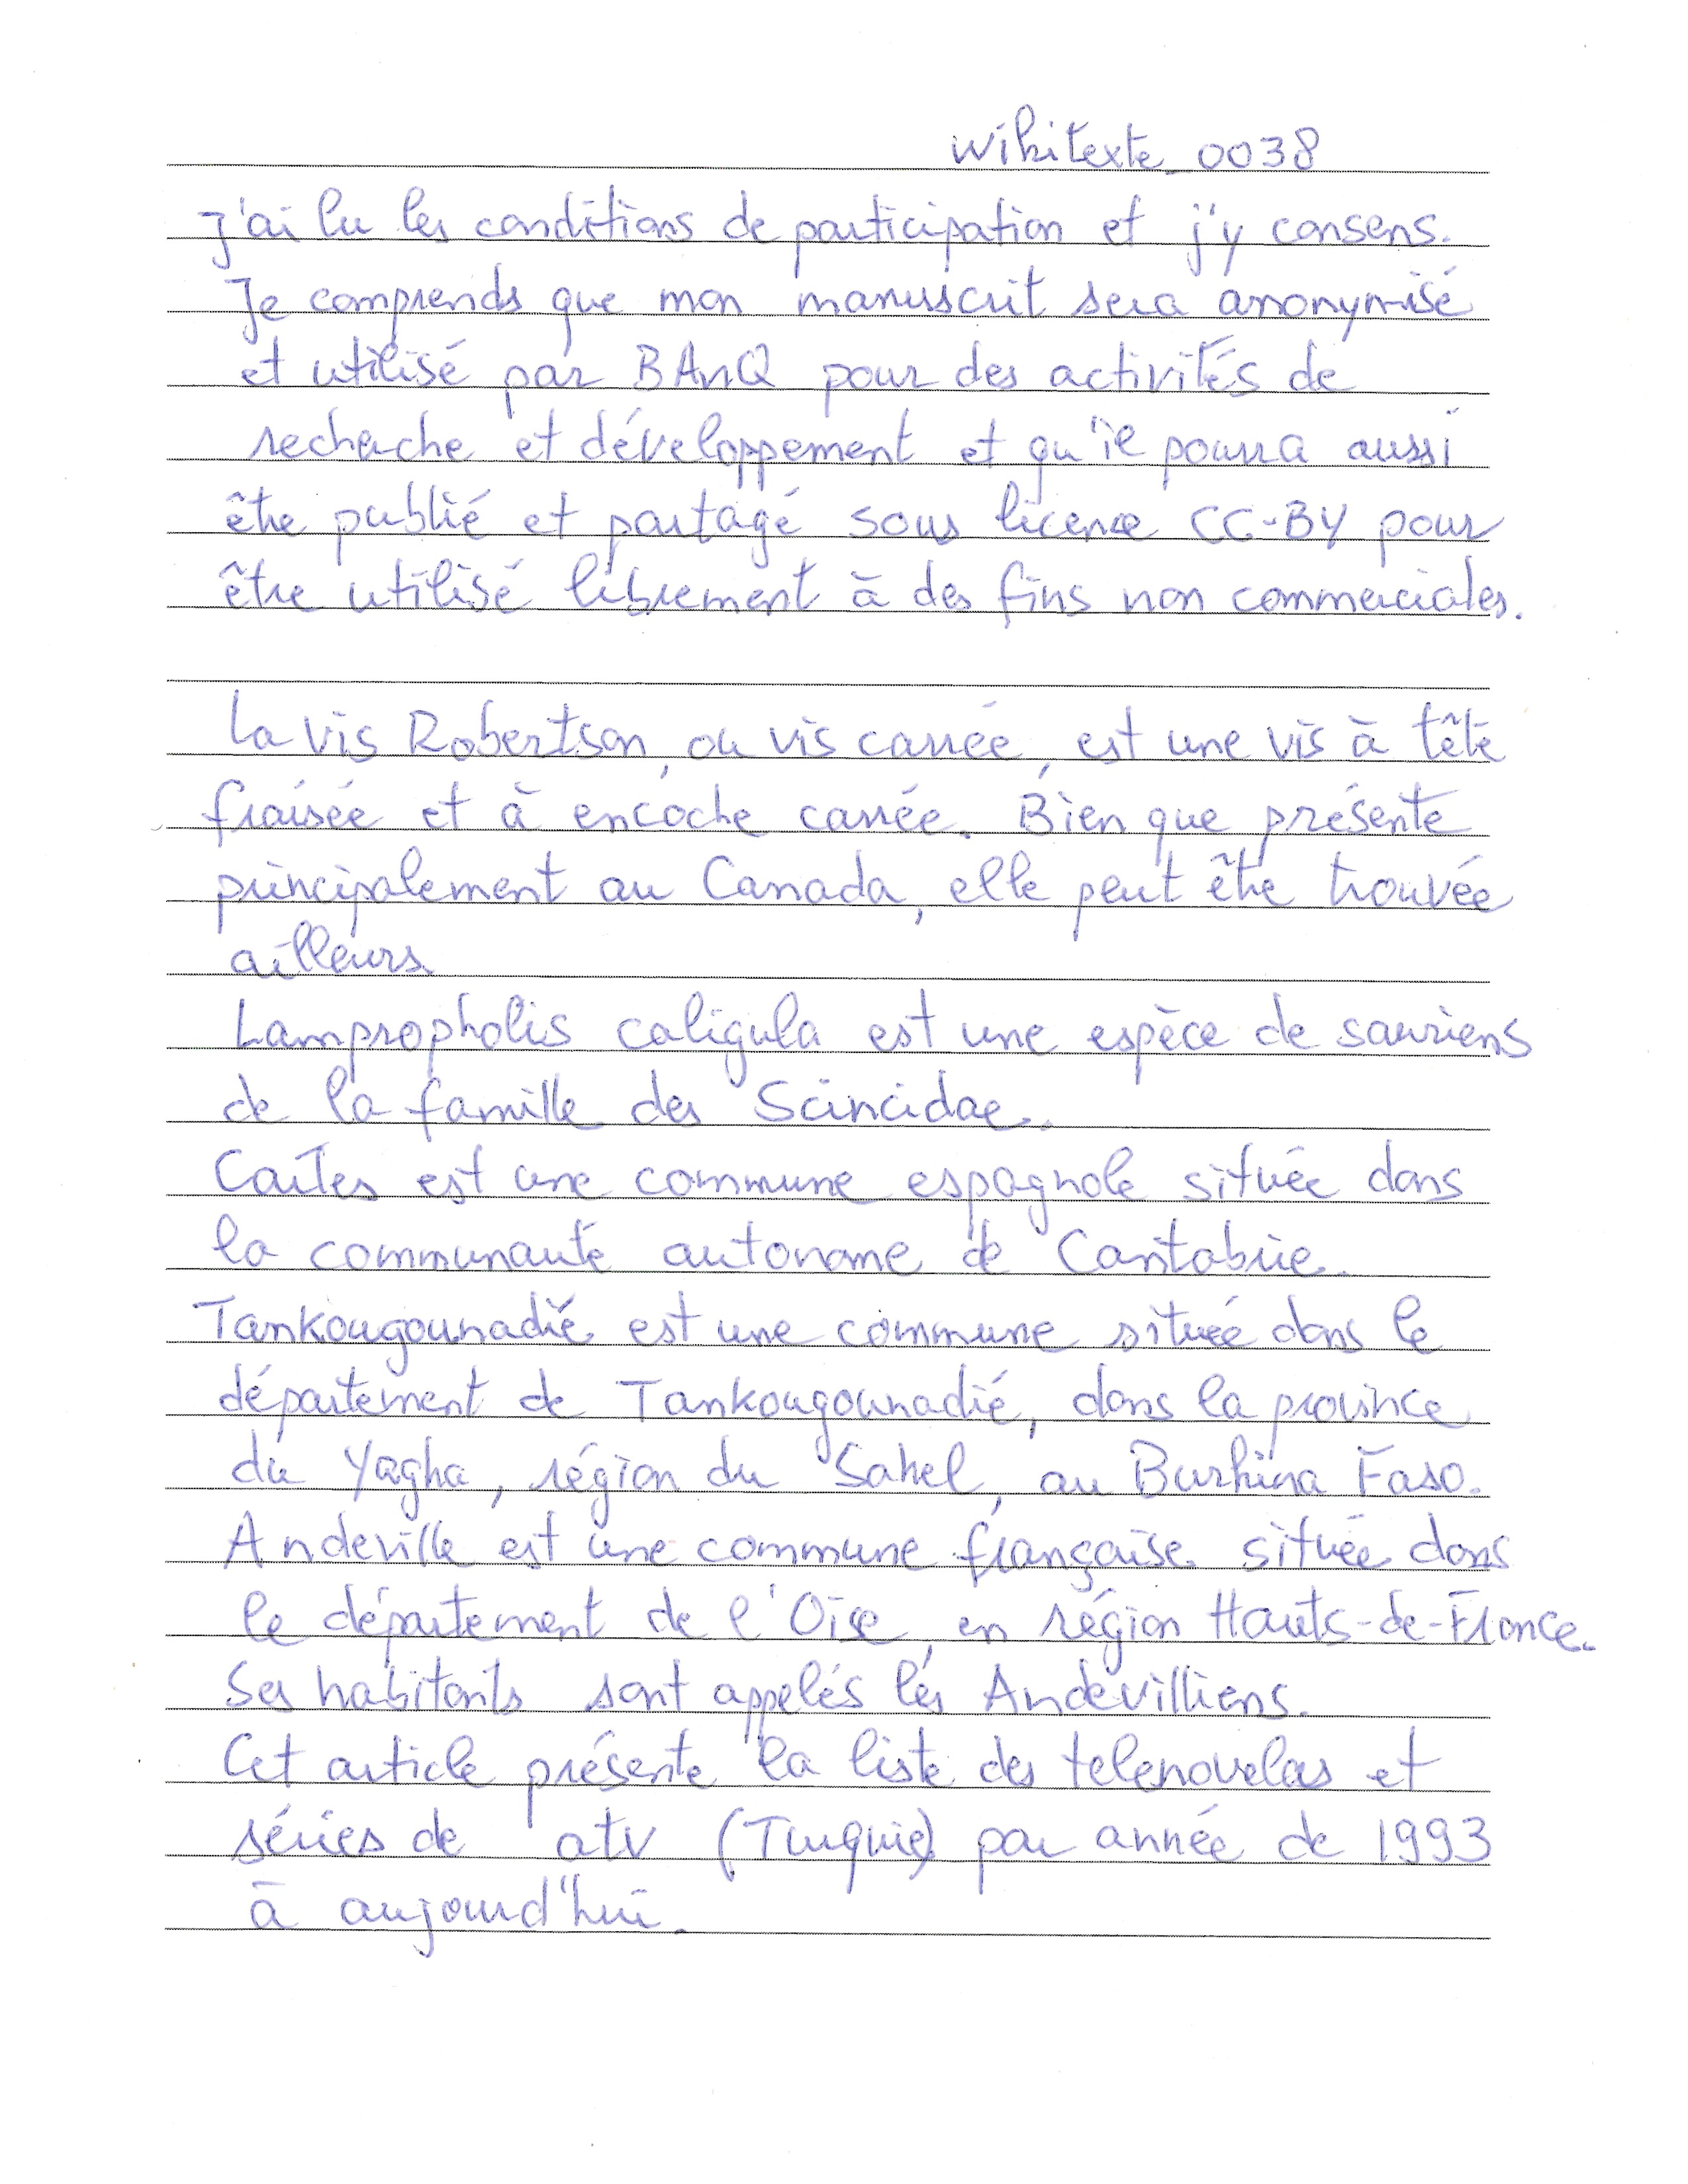 Wikitexte_0038
J'ai lu les conditions de participation et j'y consens.
Je comprends que mon manuscrit sera anonymisé
et utilisé par BAnQ pour des activités de
recherche et développement et qu'il pourra aussi
être publié et partagé sous licence CC-BY pour
être utilisé librement à des fins non commerciales.
La vis Robertson, ou vis carrée, est une vis à tête
fraisée et à encoche carrée. Bien que présente
principalement au Canada, elle peut être trouvée
ailleurs.
Lampropholis caligula est une espèce de sauriens
de la famille des Scincidae.
Cartes est une commune espagnole située dans
la communauté autonome de Cantabrie.
Tankougounadié est une commune située dans le
département de Tankougounadié, dans la province
du Yagha, région du Sahel, au Burkina Faso.
Andeville est une commune française située dans
le département de l'Oise, en région Hauts-de-France.
Ses habitants sont appelés les Andevilliens.
Cet article présente la liste des telenovelas et
séries de atv (Turquie) par année de 1993
à aujourd'hui.